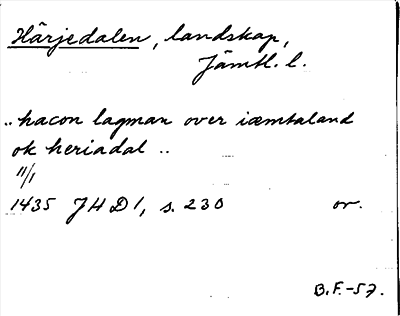 Härjedalen, landskap,
Jämtl. l.
.. hacon lagman over iæmtaland
ok heriadal ..
11/1
1435 JHD1, s. 230 or.
B.F.-57.